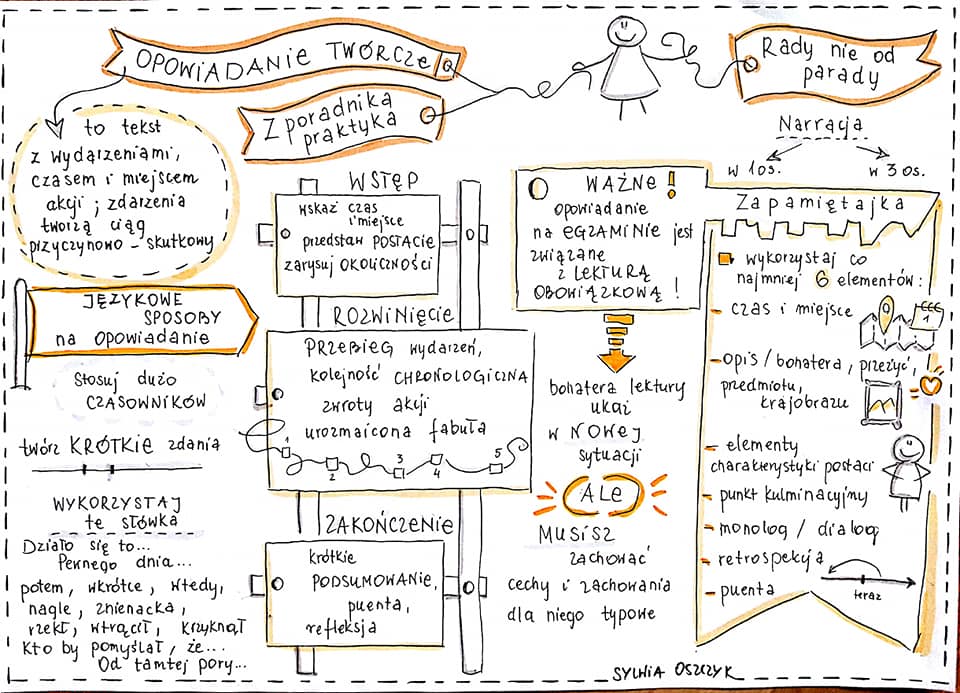 OPOWIADANIE TWÓRCZE
Z poradnika
praktyka
Rady nie od
parady
to tekst
z wydarzeniami,
czasem i miejscem
akcji; zdarzenia
tworzą ciąg
przyczynowo-skutkowy
JĘZYKOWE
SPOSOBY
na opowiadanie
Stosuj dużo
CZASOWNIKÓW
twórz KRÓTKIE zdania
WYKORZYSTAJ
te słówka
Działo się to...
Pewnego dnia...
potem, wkrótce, wtedy,
nagle, znienacka,
rzekł, wtrącił, krzyknął
Kto by pomyślał, że...
Od tamtej pory...
WSTĘP
wskaż czas
i miejsce
przedstaw POSTACIE
zarysuj OKOLICZNOŚCI
ROZWINIĘCIE
PRZEBIEG wydarzeń,
kolejność CHRONOLOGICZNA
zwroty akcji
urozmaicona fabuła
1 2 3 4 5
ZAKOŃCZENIE
krótkie
PODSUMOWANIE,
puenta,
refleksja
WAŻNE!
opowiadanie
na EGZAMINIE jest
związane
z LEKTURĄ
OBOWIĄZKOWĄ!
bohatera lektury
ukaż
w NOWEJ
sytuacji
ALE
MUSISZ
zachować
cechy i zachowania
dla niego typowe
Narracja
w 1 os. w 3 os.
Zapamiętajka
wykorzystaj co
najmniej 6 elementów:
- czas i miejsce
1
- opis / bohatera, przeżyć,
przedmiotu,
krajobrazu
- elementy
charakterystyki postaci
- punkt kulminacyjny
- monolog / dialog
- retrospekcja
teraz
- puenta
SYLWIA OSZCZYK